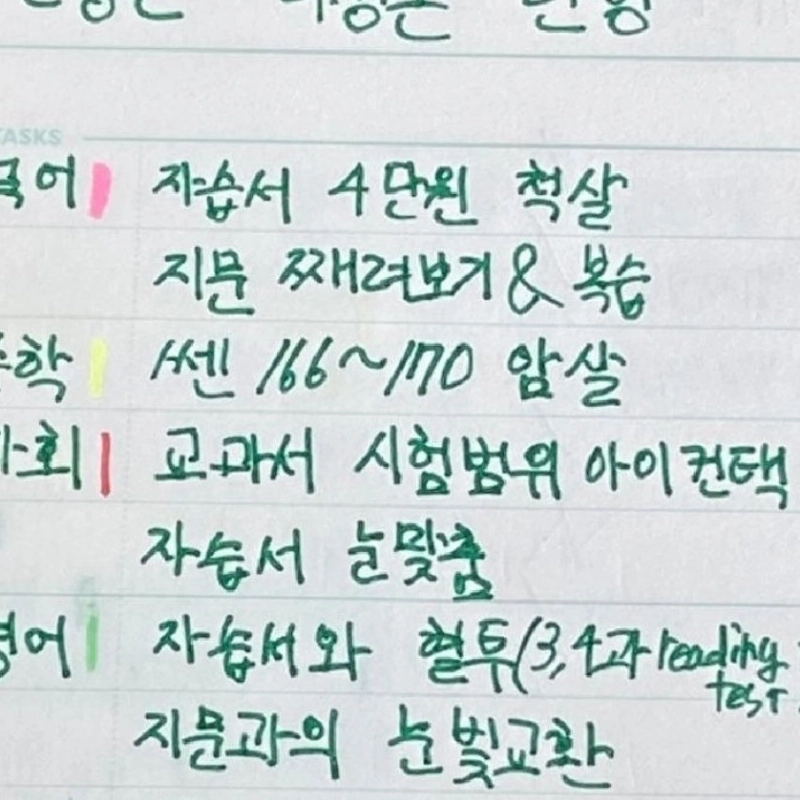 TASKS
국어 자습서 4단원 척살
지문 째려보기 & 복습
수학 쎈 166~170 암살
사회 교과서 시험범위 아이컨택
자습서 눈맞춤
영어 자습서와 혈투(3,4과 reading
test
지문과의 눈빛교환